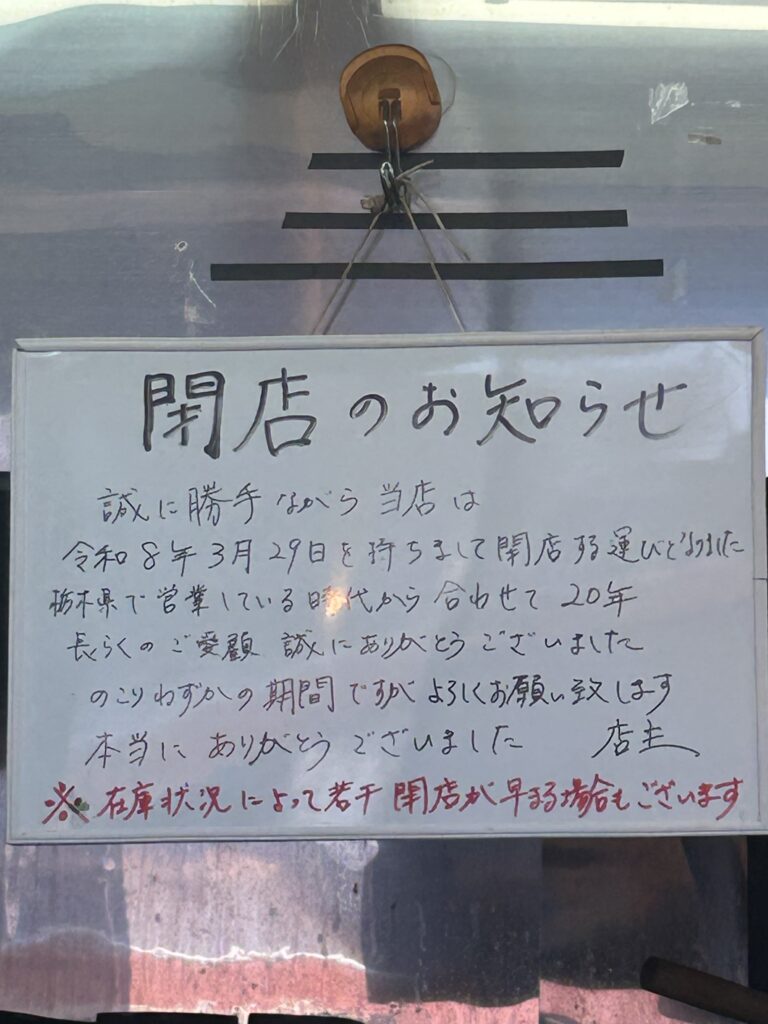 閉店のお知らせ
誠に勝手ながら当店は
令和8年3月29日を持ちまして閉店する運びとなりました
栃木県で営業している時代から合わせて20年
長らくのご愛顧 誠にありがとうございました
のこりわずかの期間ですがよろしくお願い致します
本当にありがとうございました 店主
※在庫状況によって若干閉店が早まる場合もございます